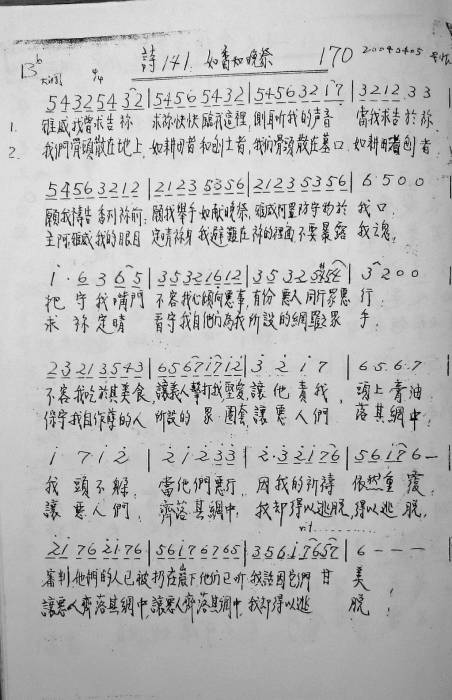 詩141. 如香如晚祭 170 20040405
Bb 大調 4/4
5 4 3 2 5 4 3 2 | 5 4 5 6 5 4 3 2 | 5 4 5 6 3 2 1 7 | 3 2 1 2 3 3
1. 雅威我曾求告祢 求祢快快臨我這裡, 側耳听我的声音 當我求告於祢,
2. 我們骨頭散在地上, 如耕田者和刨土者, 我們骨頭散在墓口, 如耕田者刨者,
5 4 5 6 3 2 1 2 | 2 1 2 3 5 3 5 6 | 2 1 2 3 5 3 5 6 | 6 · 5 0 0
願我禱告 祢前: 願我舉手如献晚祭, 雅威阿里防守物於 我口,
主阿雅威我的眼目 定睛祢身我避難在祢的裡面不要暴露 我魂,
1 · 6 3 6 5 | 3 5 3 2 1 6 1 2 | 3 5 3 2 | 3 2 0 0
把守我嘴門 不容我心傾向惡事, 有份惡人同行眾惡 行,
求祢定睛 看守我自他們為我所設的網羅眾 手,
2 3 2 1 3 5 4 3 | 6 5 6 7 1 7 1 2 | 3 2 1 7 | 6 5 . 6 . 7
不容我吃於其美食, 讓義人擊打我堅愛, 讓他責我, 頭上膏油
保守我自作孽的人 所設的 眾 圈套, 讓惡人們 落其網中,
1 7 1 2 | 2 1 2 3 3 | 2 · 3 2 1 7 6 | 5 6 1 7 6 —
我頭不躲, 當他們惡行, 因我的祈禱 依然重覆,
讓惡人們, 齊落其網中, 我却得以逃脫, 得以逃脫,
rit.......
2 1 7 6 2 1 7 6 | 5 6 1 7 6 7 6 5 | 3 5 6 1 7 6 5 7 | 6 - - -
審判他們的人已被扔在巖下他們已听我話因它們甘 美,
讓惡人齊落其網中, 讓惡人齊落其網中, 我却得以逃 脫!